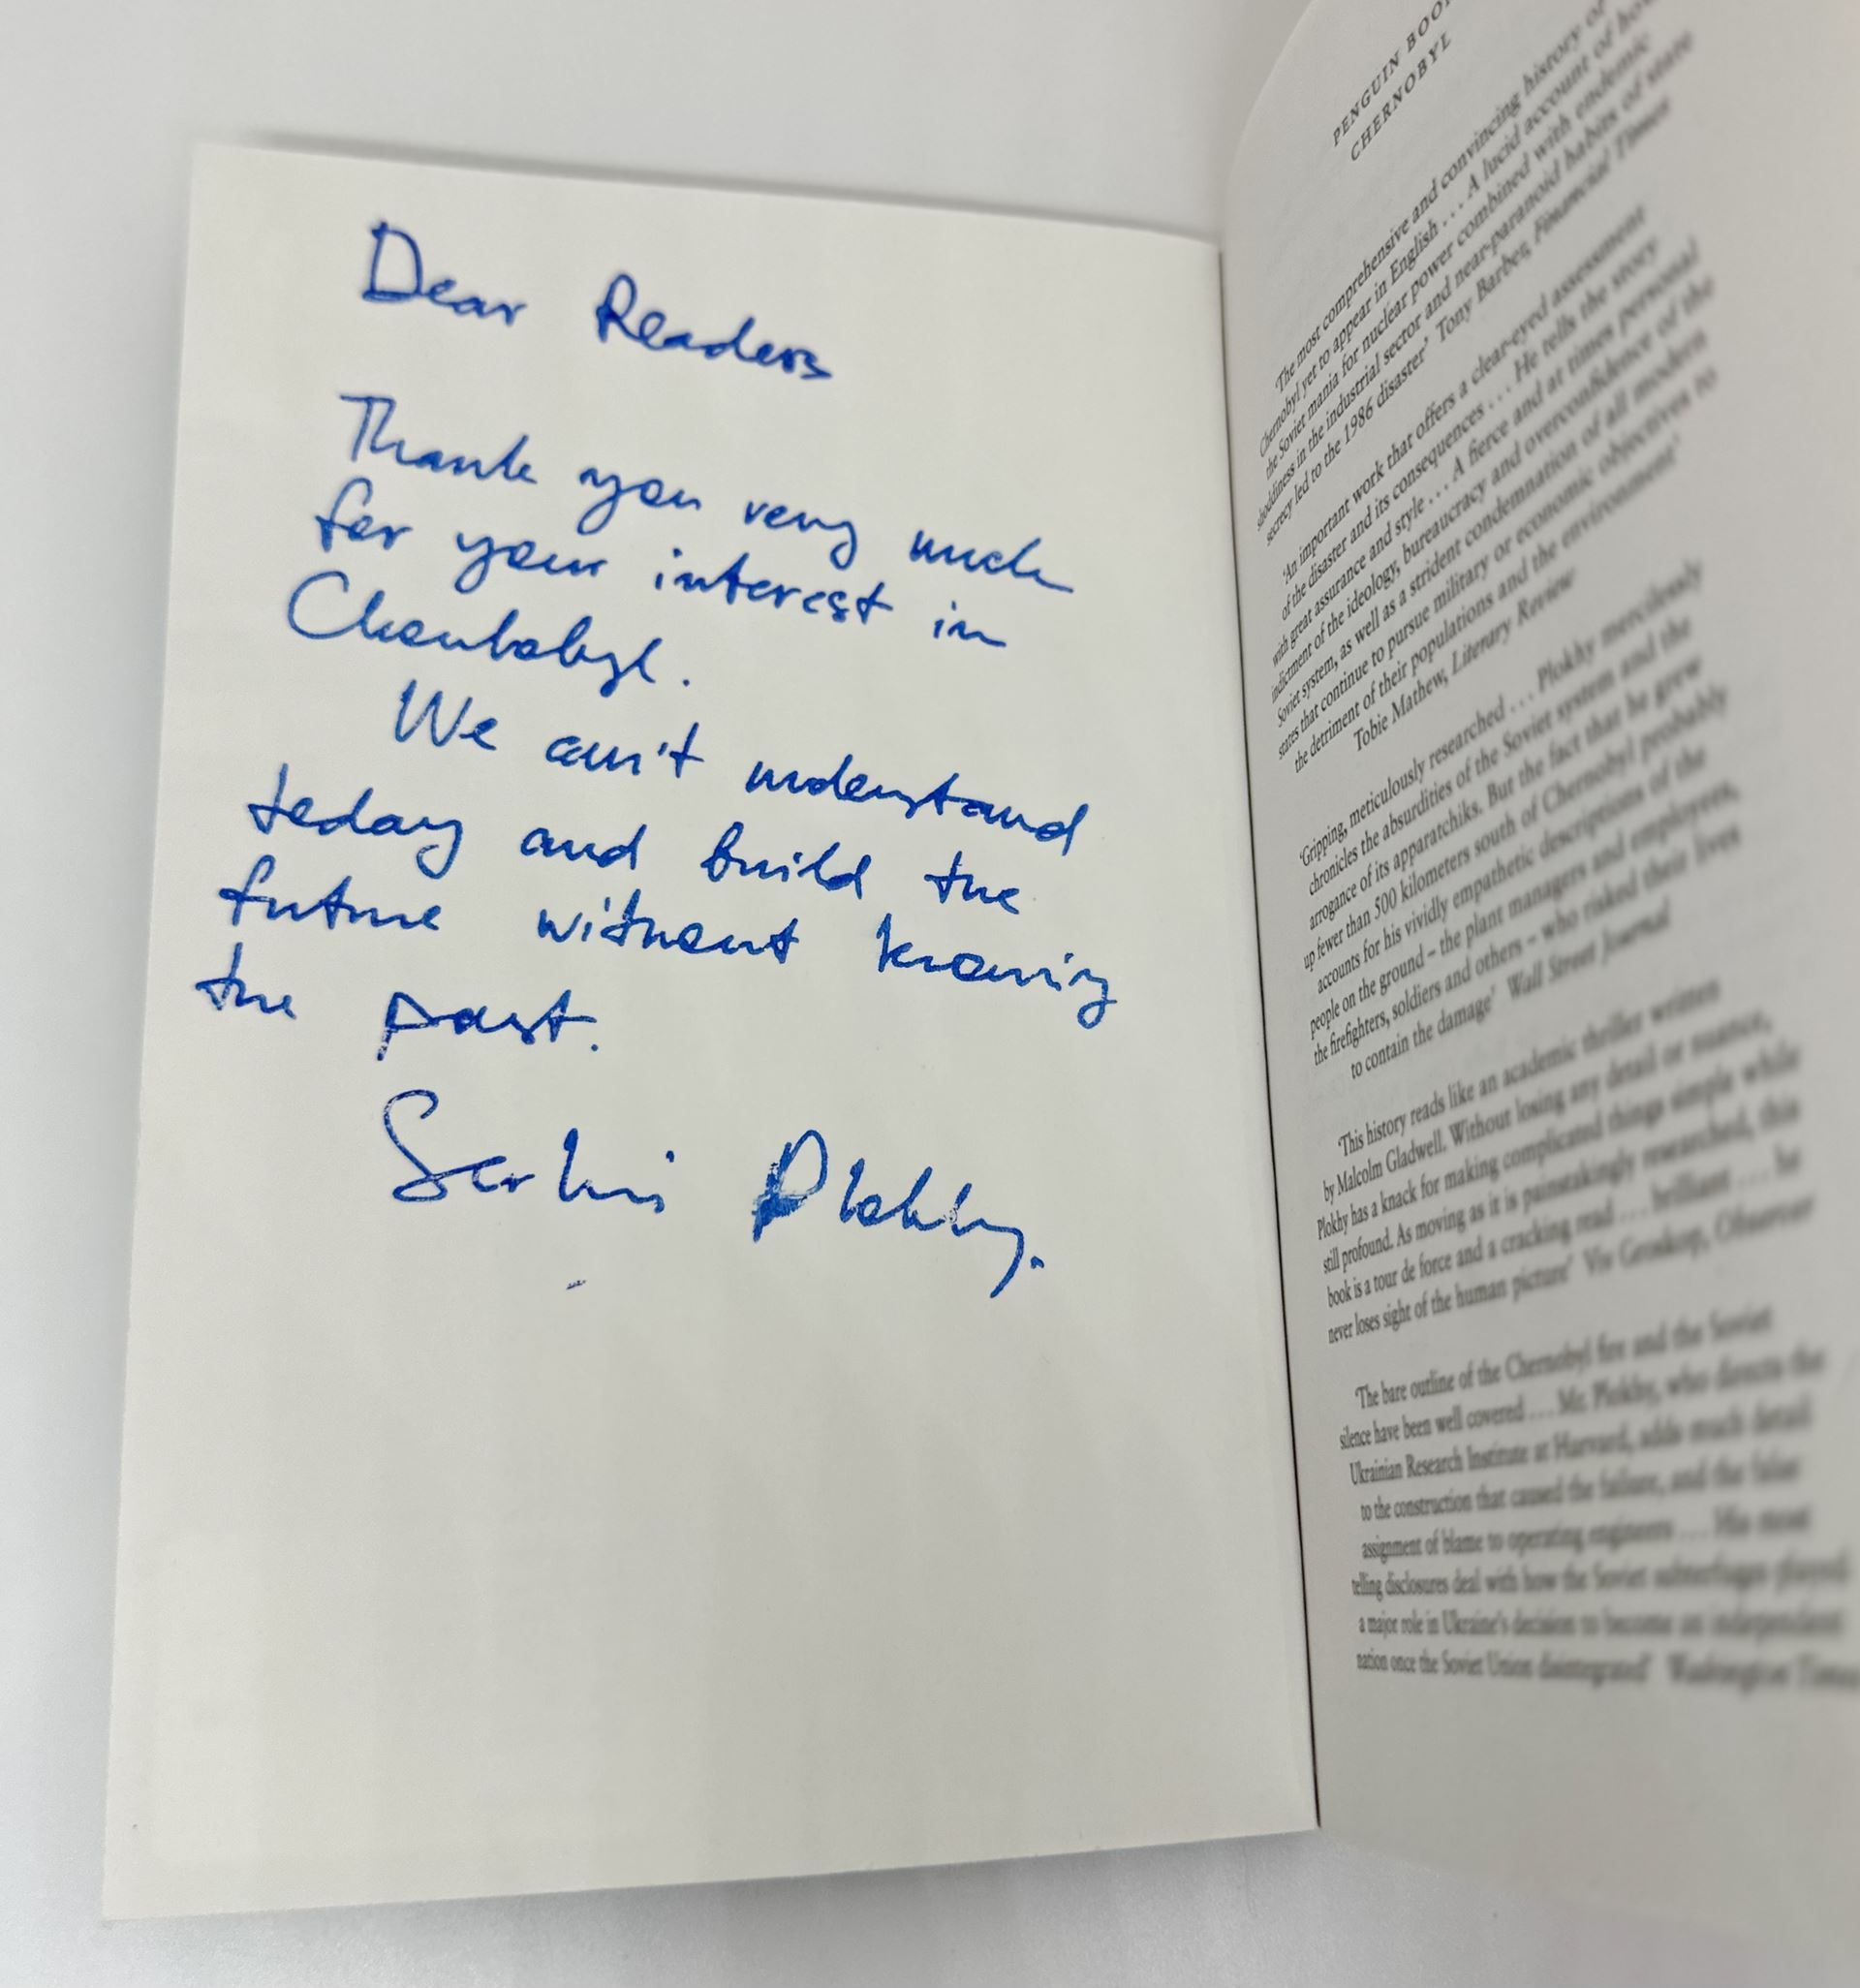 Dear Readers
Thank you very much
for your interest in
Chernobyl.
We can't understand
today and build the
future without knowing
the past.
Serhii Plokhy.
PENGUIN BOOK
CHERNOBYL
'The most comprehensive and convincing history of
Chernobyl yet to appear in English . . . A lucid account of how
the Soviet mania for nuclear power combined with endemic
shoddiness in the industrial sector and near-paranoid habits of state
secrecy led to the 1986 disaster' Tony Barber, Financial Times
'An important work that offers a clear-eyed assessment
of the disaster and its consequences . . . He tells the story
with great assurance and style . . . A fierce and at times personal
indictment of the ideology, bureaucracy and overconfidence of the
Soviet system, as well as a strident condemnation of all modern
states that continue to pursue military or economic objectives to
the detriment of their populations and the environment'
Tobie Mathew, Literary Review
'Gripping, meticulously researched . . . Plokhy mercilessly
chronicles the absurdities of the Soviet system and the
arrogance of its apparatchiks. But the fact that he grew
up fewer than 500 kilometers south of Chernobyl probably
accounts for his vividly empathetic descriptions of the
people on the ground – the plant managers and employees,
the firefighters, soldiers and others – who risked their lives
to contain the damage' Wall Street Journal
'This history reads like an academic thriller written
by Malcolm Gladwell. Without losing any detail or nuance,
Plokhy has a knack for making complicated things simple while
still profound. As moving as it is painstakingly researched, this
book is a tour de force and a cracking read . . . brilliant . . . he
never loses sight of the human picture' Viv Groskop, Observer
'The bare outline of the Chernobyl fire and the Soviet
silence have been well covered . . . Mr. Plokhy, who directs the
Ukrainian Research Institute at Harvard, adds much detail
to the construction that caused the failure, and the false
assignment of blame to operating engineers . . . His most
telling disclosures deal with how the Soviet subterfuges played
a major role in Ukraine's decision to become an independent
nation once the Soviet Union disintegrated' Washington Times